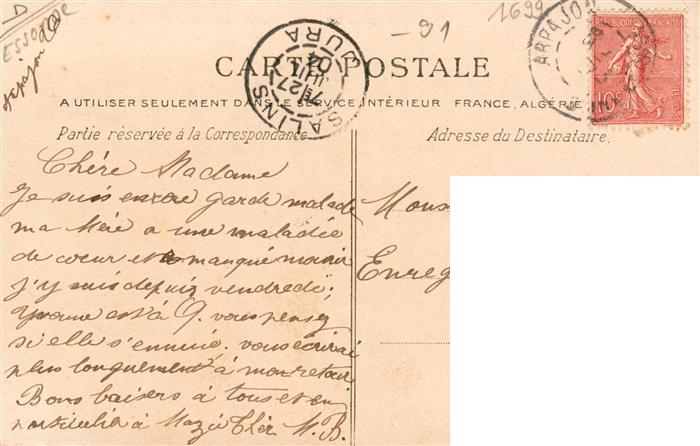 D
ESSONNE
Arpajon
-91
1699
CARTE POSTALE
SALINS
JURA
27
ARPAJON
RÉPUBLIQUE FRANÇAISE
10c
POSTES
A UTILISER SEULEMENT DANS LE SERVICE INTÉRIEUR FRANCE, ALGÉRIE
Partie réservée à la Correspondance
Adresse du Destinataire.
Chère Madame
Je suis encore garde malade
ma Mère a une maladie
de coeur et a manqué mourir
j'y suis depuis vendredi;
Yvonne est à P. vous pensez
si elle s'ennuie. vous écrirai
plus longuement à mon retour
Bons baisers à tous et en
particulier à Mazie Thér. M. B.
Mons
Enreg